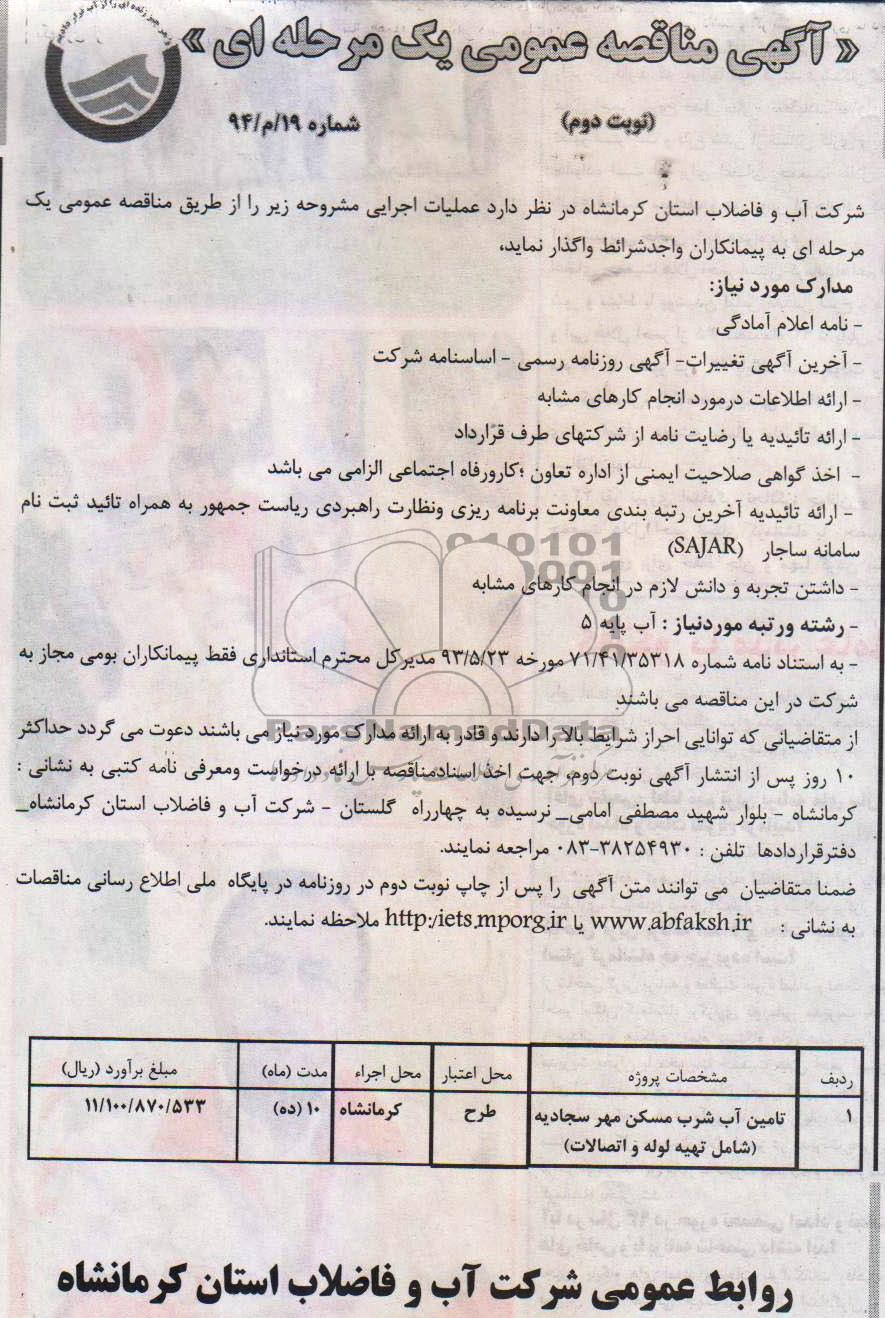 « آگهی مناقصه عمومی یک مرحله ای »
(نوبت دوم) شماره ۱۹/م/۹۴
شرکت آب و فاضلاب استان کرمانشاه در نظر دارد عملیات اجرایی مشروحه زیر را از طریق مناقصه عمومی یک
مرحله ای به پیمانکاران واجدشرائط واگذار نماید،
مدارک مورد نیاز:
- نامه اعلام آمادگی
- آخرین آگهی تغییرات- آگهی روزنامه رسمی - اساسنامه شرکت
- ارائه اطلاعات درمورد انجام کارهای مشابه
- ارائه تائیدیه یا رضایت نامه از شرکتهای طرف قرارداد
- اخذ گواهی صلاحیت ایمنی از اداره تعاون ؛کارورفاه اجتماعی الزامی می باشد
- ارائه تائیدیه آخرین رتبه بندی معاونت برنامه ریزی ونظارت راهبردی ریاست جمهور به همراه تائید ثبت نام
سامانه ساجار (SAJAR)
- داشتن تجربه و دانش لازم در انجام کارهای مشابه
- رشته ورتبه موردنیاز : آب پایه ۵
- به استناد نامه شماره ۷۱/۴۱/۳۵۳۱۸ مورخه ۹۳/۵/۲۳ مدیرکل محترم استانداری فقط پیمانکاران بومی مجاز به
شرکت در این مناقصه می باشند
از متقاضیانی که توانایی احراز شرایط بالا را دارند و قادر به ارائه مدارک مورد نیاز می باشند دعوت می گردد حداکثر
۱۰ روز پس از انتشار آگهی نوبت دوم، جهت اخذ اسنادمناقصه با ارائه درخواست ومعرفی نامه کتبی به نشانی :
کرمانشاه - بلوار شهید مصطفی امامی_ نرسیده به چهارراه گلستان - شرکت آب و فاضلاب استان کرمانشاه_
دفترقراردادها تلفن : ۳۸۲۵۴۹۳۰-۰۸۳ مراجعه نمایند.
ضمنا متقاضیان می توانند متن آگهی را پس از چاپ نوبت دوم در روزنامه در پایگاه ملی اطلاع رسانی مناقصات
به نشانی : www.abfaksh.ir یا http:/iets.mporg.ir ملاحظه نمایند.
ردیف مشخصات پروژه محل اعتبار محل اجراء مدت (ماه) مبلغ برآورد (ریال)
۱ تامین آب شرب مسکن مهر سجادیه طرح کرمانشاه ۱۰ (ده) ۱۱/۱۰۰/۸۷۰/۵۳۳
(شامل تهیه لوله و اتصالات)
روابط عمومی شرکت آب و فاضلاب استان کرمانشاه
ParsNamadData